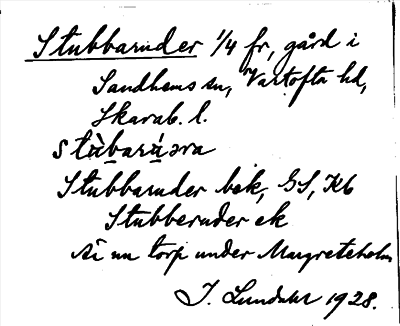 Stubbaruder 1/4 fr, gård i
Sandhems sn, Vartofta hd,
Skarab. l.
stùbarùəra
Stubbaruder bok, GS, Kb
Stubberuder ek
Är nu torp under Margreteholm
J. Lundahl 1928.